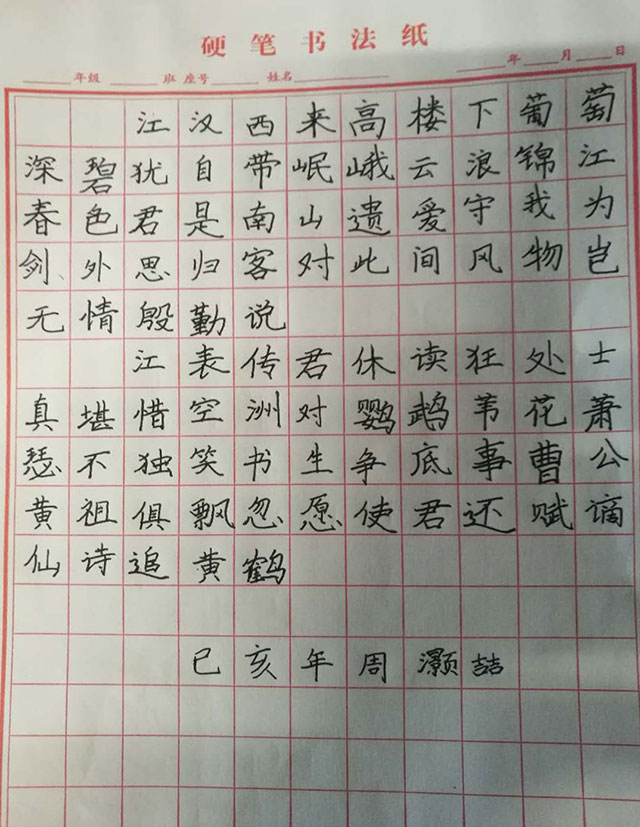 硬笔书法纸
年级 班 座号 姓名 年 月 日
江汉西来高楼下葡萄
深碧犹自带岷峨云浪锦江
春色君是南山遗爱守我为
剑外思归客对此间风物岂
无情殷勤说
江表传君休读狂处士
真堪惜空洲对鹦鹉苇花萧
瑟不独笑书生争底事曹公
黄祖俱飘忽愿使君还赋谪
仙诗追黄鹤
已亥年周灏喆